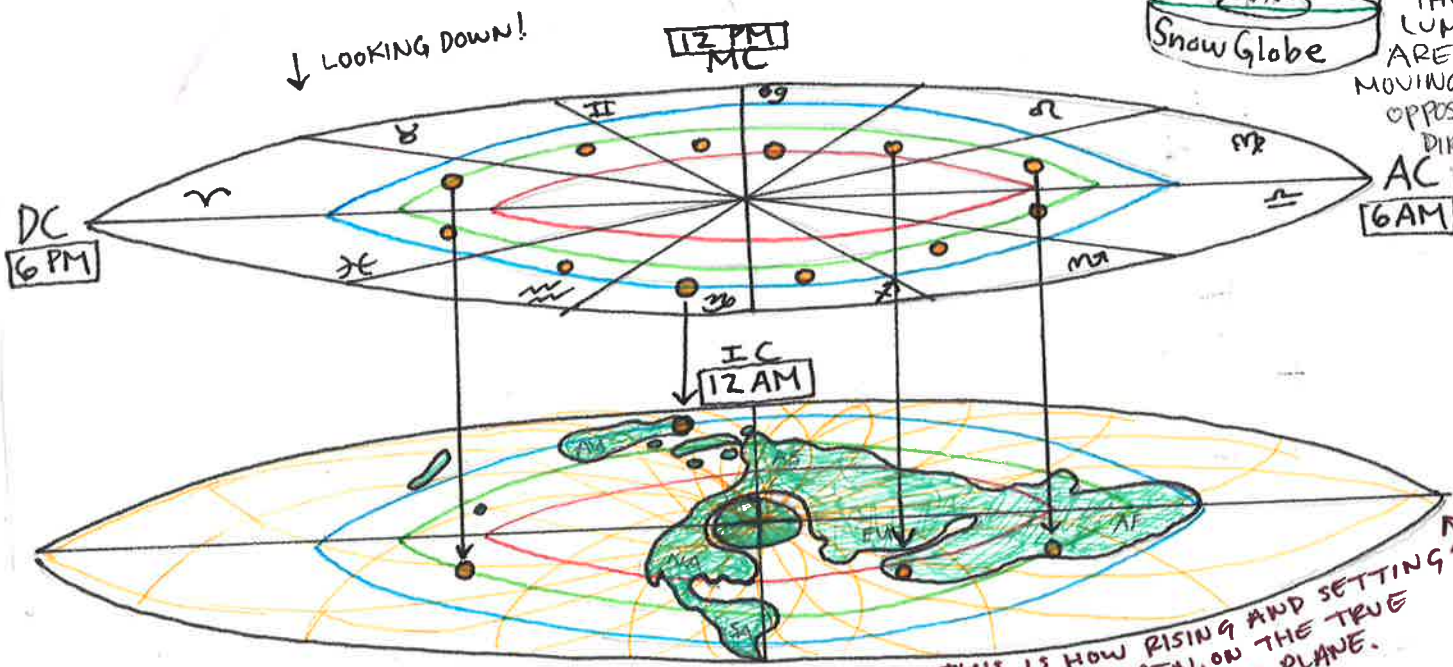 ↓ LOOKING DOWN!
12 PM
MC
Snow Globe
ARE
MOVING
♈
♉
II
♋
♌
♍
♎
♏
♐
♑
♒
♓
DC
6 PM
AC
6 AM
IC
12 AM
AU
AS
EUR
AF
SA
THIS IS HOW RISING AND SETTING
ON THE TRUE
PLANE.